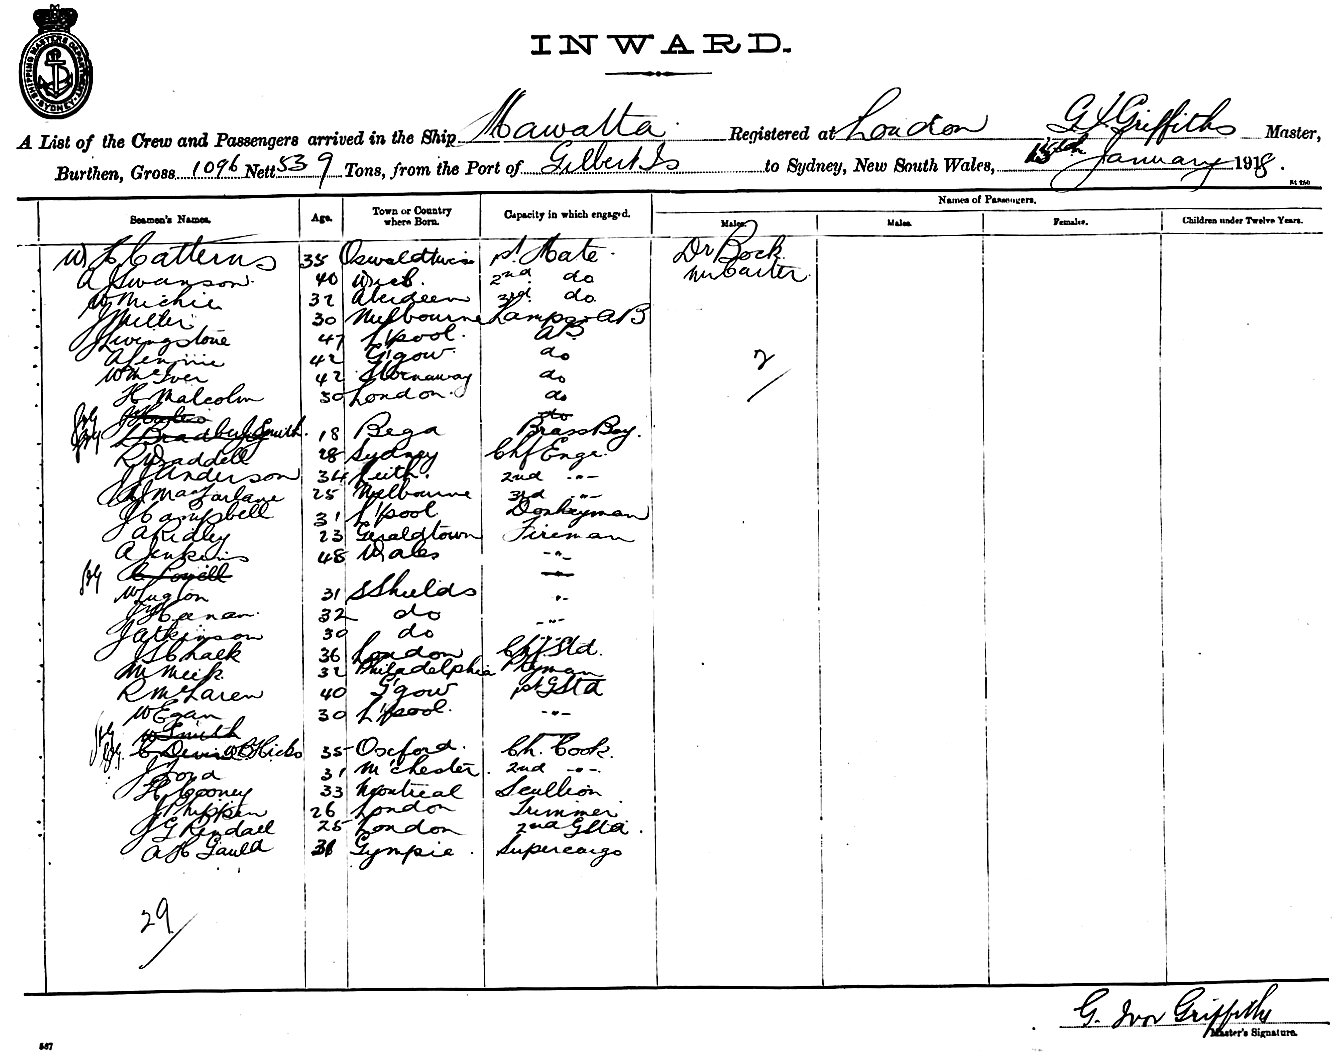 SHIPPING MASTERS DEPARTMENT SYDNEY
INWARD.
A List of the Crew and Passengers arrived in the Ship Mawatta Registered at London G I Griffiths Master,
Burthen, Gross 1096 Nett 539 Tons, from the Port of Gilbert Is to Sydney, New South Wales, January 1918.
Seamen's Names. Age. Town or Country where Born. Capacity in which engaged. Names of Passengers.
Males. Males. Females. Children under Twelve Years.
W Catterns 35 1st Mate Dr Bock
A Swanson 40 Wick 2nd do Mr Carter
W Michie 32 Aberdeen 3rd do
J Miller 30 Melbourne Lamps AB
J Livingstone 47 L'pool AB
A 42 G'gow do
W McIver 42 Stornaway do
H Malcolm 30 London do
do
L Bradley J Smith 18 Bega Brass Boy
R Waddell 28 Sydney Chf Engr
J Anderson 34 Leith 2nd -"-
MacFarlane 25 Melbourne 3rd -"-
J Campbell 31 L'pool Donkeyman
A Ridley 23 Geraldtown Fireman
A Jenkins 48 Wales -"-
C Powell
W 31 S Shields -"-
J Heenan 32 do -"-
J Atkinson 30 do -"-
J Schack 36 London Chf Std
M Meek 32 Philadelphia P'tryman
R McLaren 40 G'gow 1st G Std
W Egan 30 L'pool -"-
W Smith
C Devine W C Hicks 35 Oxford Ch. Cook
J Boyd 31 M'chester 2nd -"-
H Cooney 33 Montreal Scullion
J Phippen 26 London Trimmer
J G Kendall 25 London 2nd G Std
A H Gauld 31 Gympie Supercargo
2
29
G. Ivor Griffiths
Master's Signature.
557